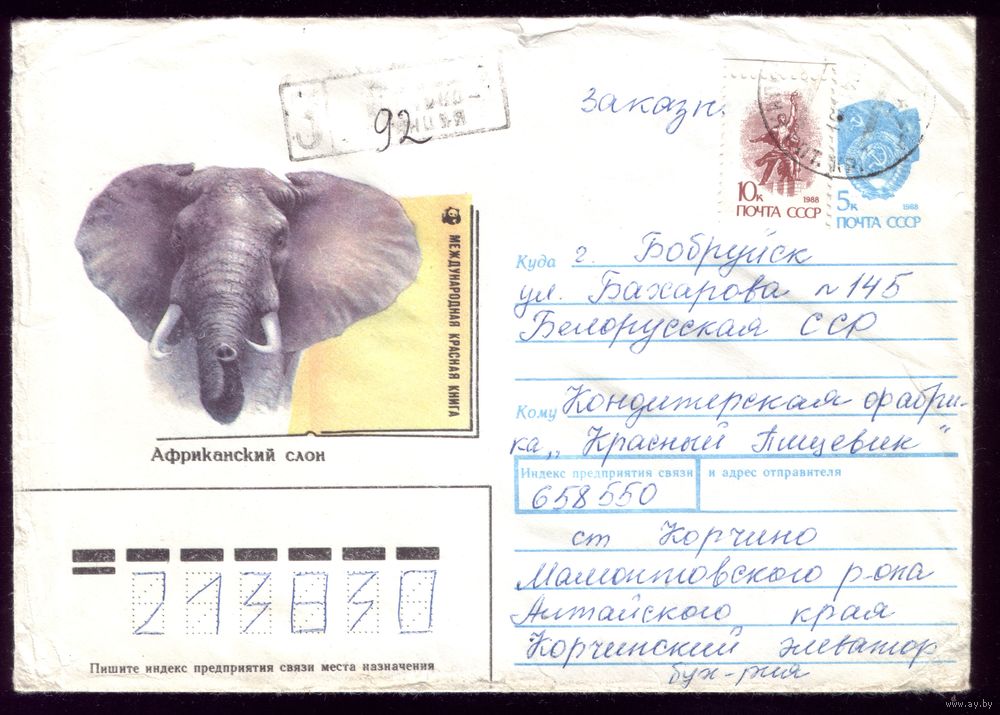 З
92
заказн.
10к
1988
ПОЧТА СССР
5к
1988
ПОЧТА СССР
МЕЖДУНАРОДНАЯ КРАСНАЯ КНИГА
Африканский слон
Куда г. Бобруйск
ул. Бахарова N 145
Белорусская ССР
Кому Кондитерская фабри-
ка „Красный Пищевик"
Индекс предприятия связи и адрес отправителя
658550
ст Корчино
Мамонтовского р-она
Алтайского края
Корчинский элеватор
бух-рия
213830
Пишите индекс предприятия связи места назначения
www.ay.by